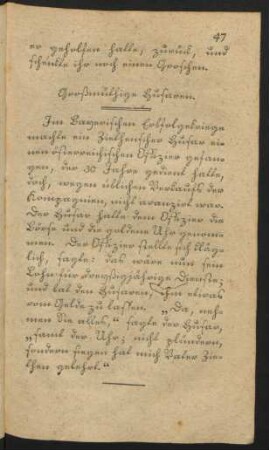 47
er geholfen hatte, zurück, und
schenkte ihr noch einen Groschen.
Großmüthige Husaren.
Im Bayerischen Erbfolgekriege
machte ein Ziethenscher Husar ei
nen österreichischen Offizier gefan
gen, der 30 Jahre gedient hatte,
doch, wegen üblichen Verkaufs der
Kompagnien, nicht avanzirt war.
Der Husar hatte dem Offizier die
Börse und die goldene Uhr genom
men. Der Offizier stellte sich kläg
lich, sagte: das wäre nun sein
Lohn für dreyßigjährige Dienste;
und bat den Husaren, ihm etwas
vom Gelde zu lassen. „Da, neh
men Sie alles," sagte der Husar,
„samt der Uhr; nicht plündern,
sondern siegen hat mich Vater Zie
then gelehrt."